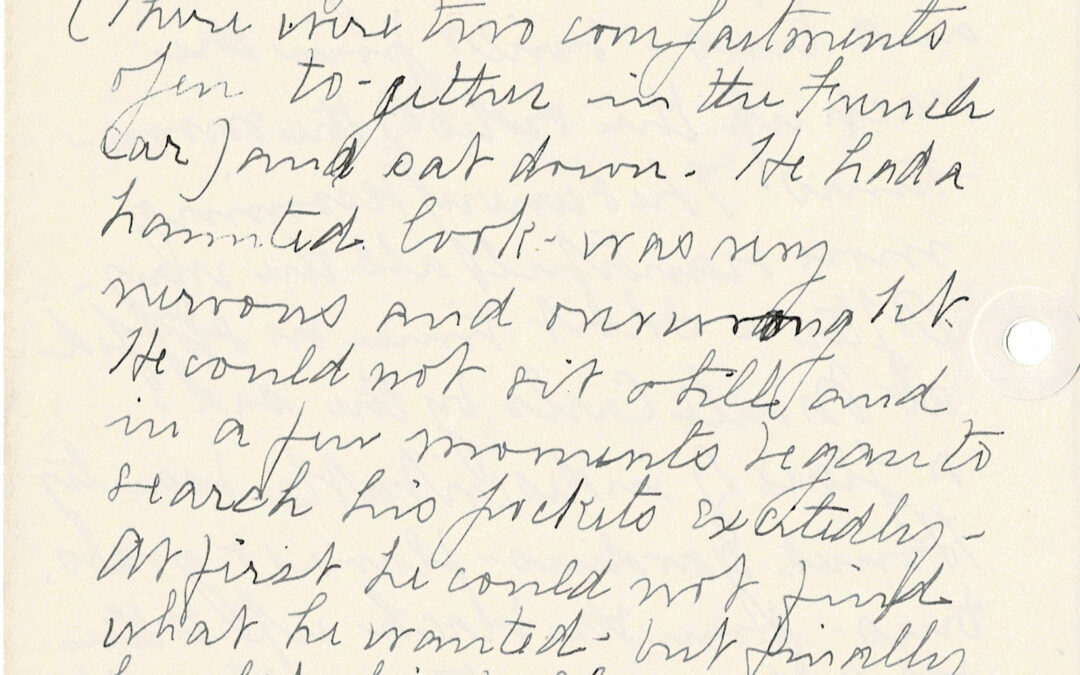 (There were two compartments
open to-gether in the French
car) and sat down. He had a
haunted look - was very
nervous and overwrought.
He could not sit still and
in a few moments began to
search his pockets excitedly -
At first he could not find
what he wanted - but finally